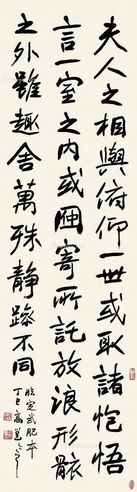 夫人之相與俯仰一世或取諸抱悟
言一室之内或因寄所託放浪形骸
之外雖趣舍萬殊靜躁不同
臨定武肥本
丁巳高